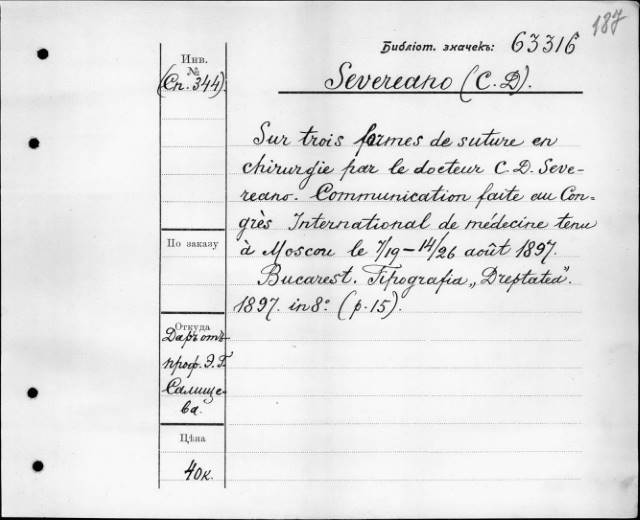 187
Библіот. значекъ: 63316
Инв.
№
(Сп. 344)
Severeano (C. D).
Sur trois formes de suture en
chirurgie par le docteur C. D. Seve-
reano. Communication faite au Con-
grès International de médecine tenu
à Moscou le 7/19 – 14/26 août 1897.
Bucarest. Tipografia „Dreptatea".
1897. in 8° (p. 15).
По заказу
Откуда
Даръ отъ
проф. Э. Г.
Салище-
ва.
Цѣна
40к.